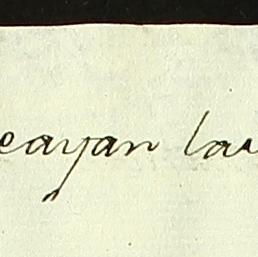 eayan lau